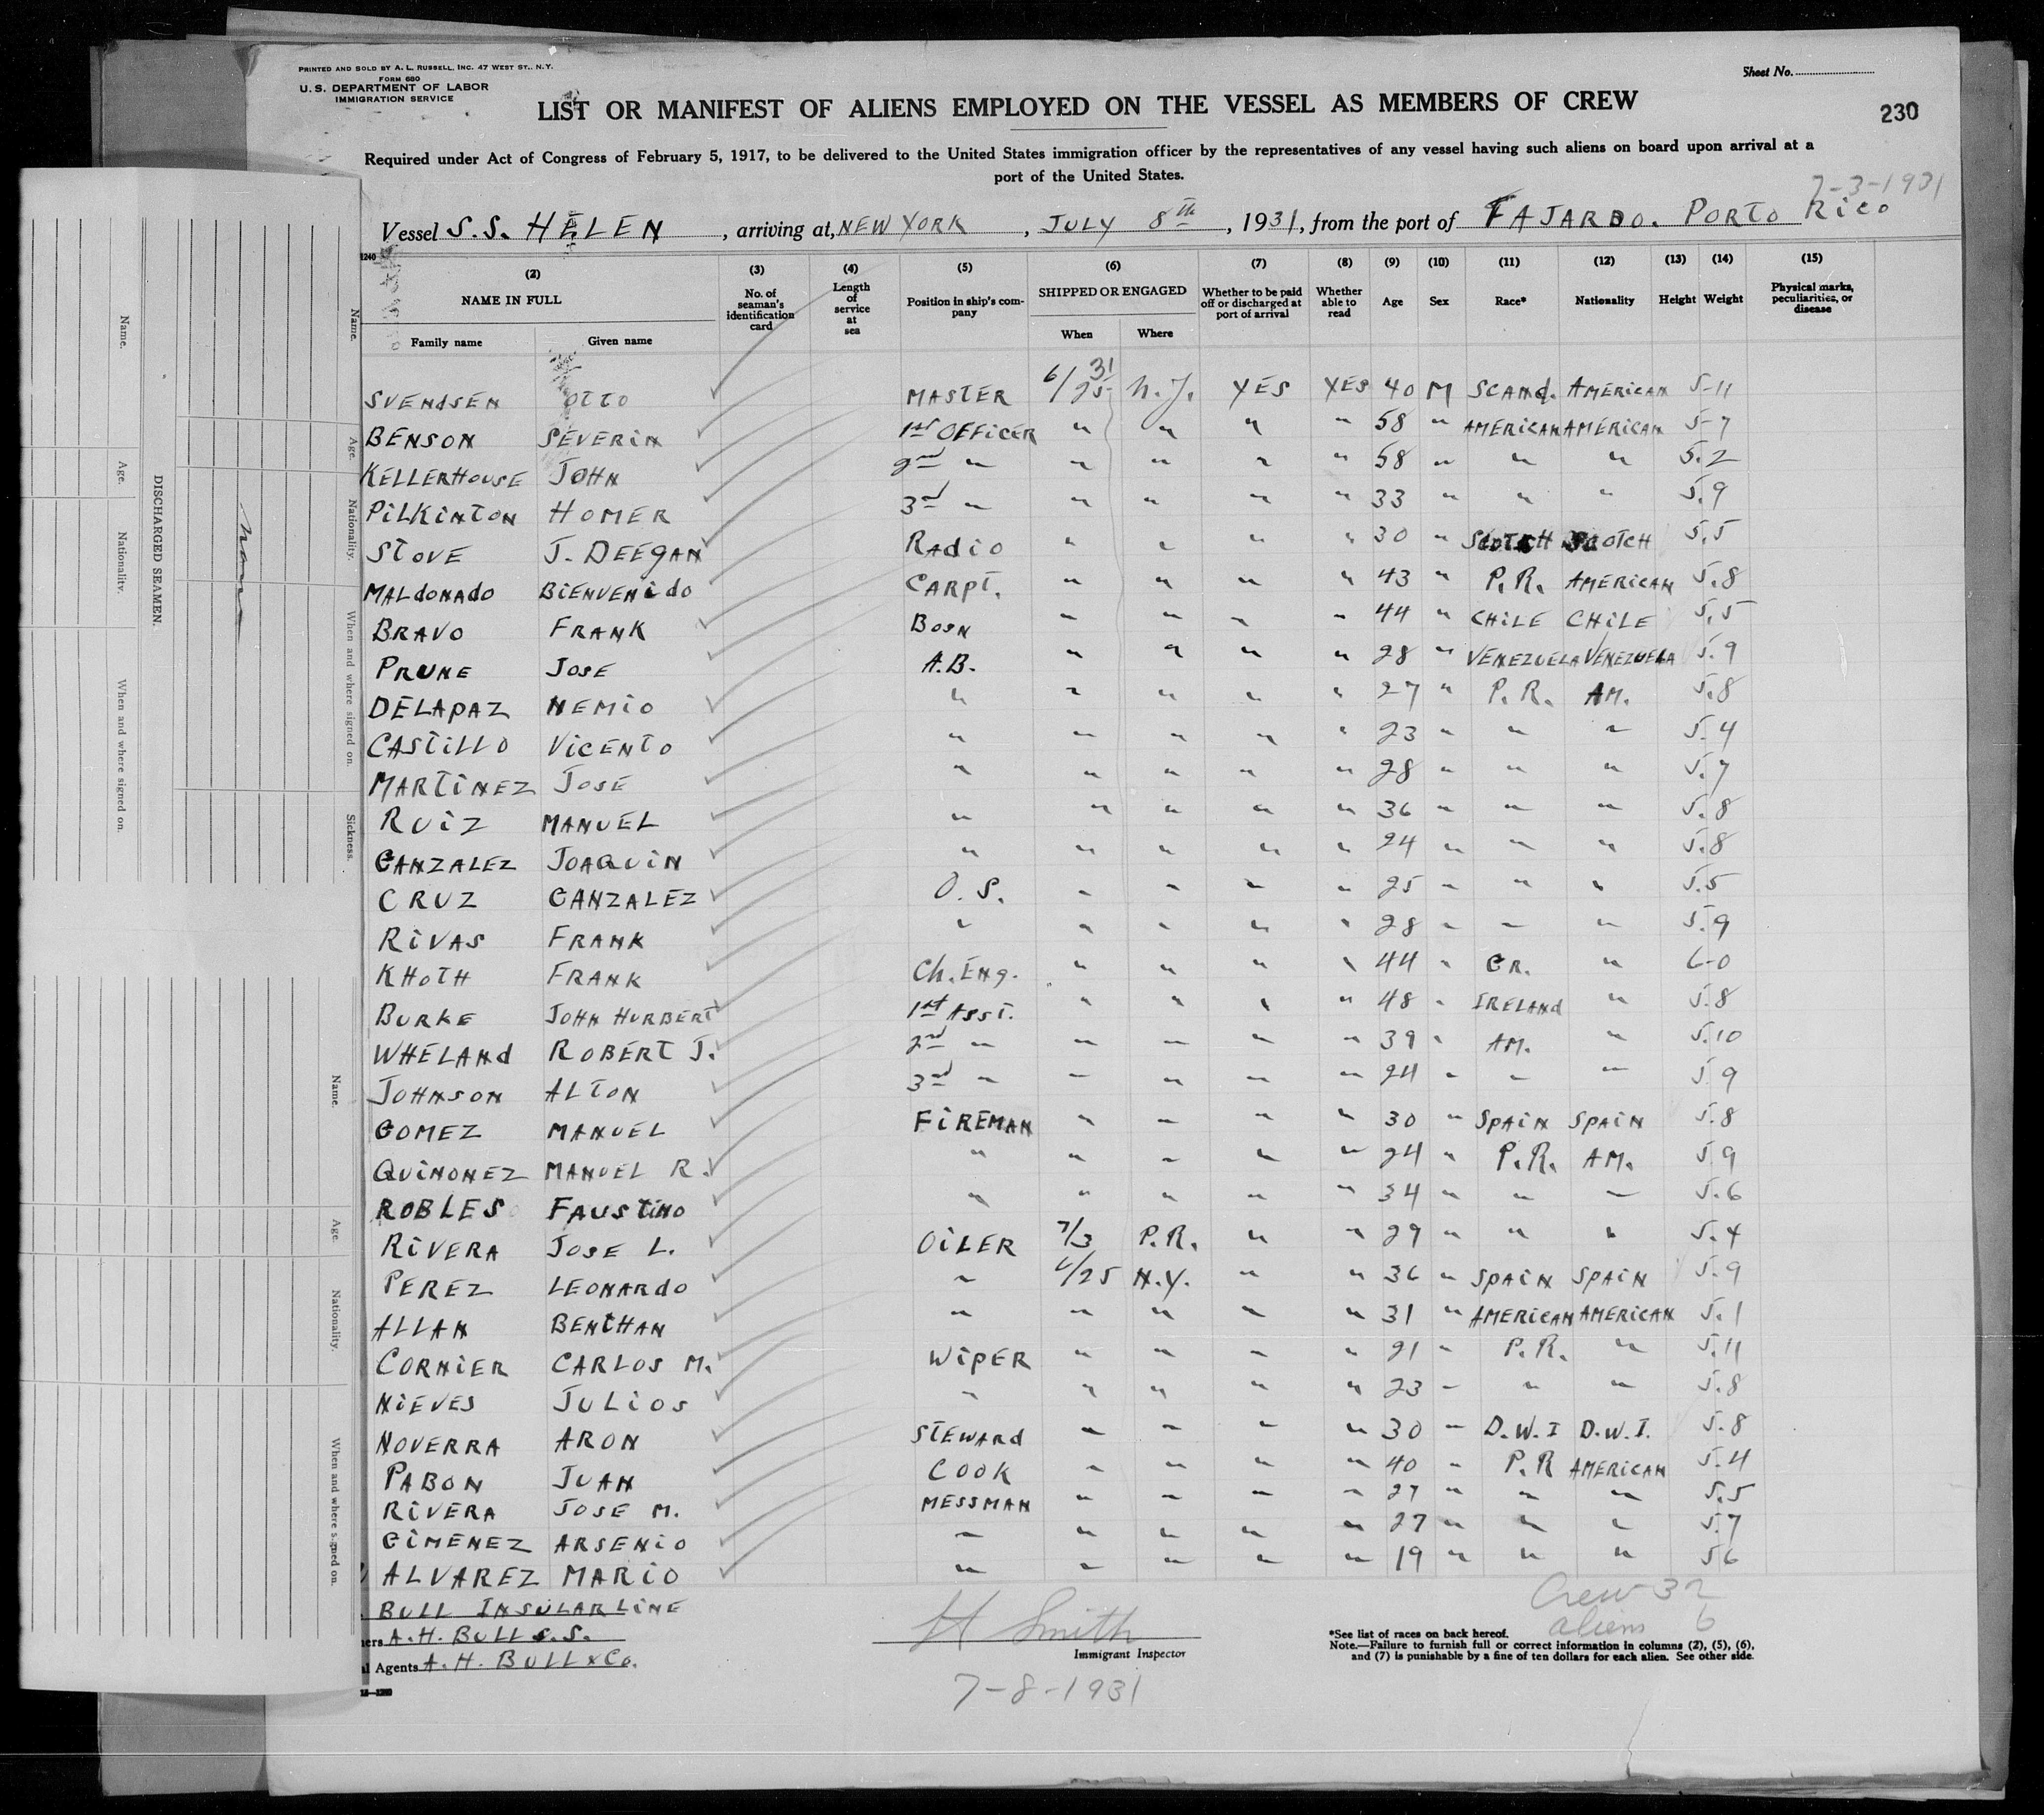 PRINTED AND SOLD BY A. L. RUSSELL, INC. 47 WEST ST., N.Y.
FORM 680
U. S. DEPARTMENT OF LABOR
IMMIGRATION SERVICE
Sheet No.
LIST OR MANIFEST OF ALIENS EMPLOYED ON THE VESSEL AS MEMBERS OF CREW
230
Required under Act of Congress of February 5, 1917, to be delivered to the United States immigration officer by the representatives of any vessel having such aliens on board upon arrival at a
port of the United States.
7-3-1931
Vessel S.S. HELEN, arriving at, NEW YORK, JULY 8th, 1931, from the port of FAJARDO. PORTO RICO
1240
(2) (3) (4) (5) (6) (7) (8) (9) (10) (11) (12) (13) (14) (15)
NAME IN FULL
Family name Given name
No. of seaman's identification card
Length of service at sea
Position in ship's company
SHIPPED OR ENGAGED
When Where
Whether to be paid off or discharged at port of arrival
Whether able to read
Age Sex Race* Nationality Height Weight
Physical marks, peculiarities, or disease
SVENDSEN OTTO MASTER 6/25 31 N.Y. YES YES 40 M SCAND. AMERICAN 5-11
BENSON SEVERIN 1st OFFICER " " " " 58 " AMERICAN AMERICAN 5-7
KELLERHOUSE JOHN 2nd " " " " " 58 " " " 5.2
PILKINTON HOMER 3rd " " " " " 33 " " " 5.9
STOVE J. DEEGAN RADIO " " " " 30 " SCOTCH SCOTCH 5.5
MALDONADO BIENVENIDO CARPT. " " " " 43 " P.R. AMERICAN 5.8
BRAVO FRANK BOSN " " " " 44 " CHILE CHILE 5.5
PRUNE JOSE A.B. " " " " 28 " VENEZUELA VENEZUELA 5.9
DELAPAZ NEMIO " " " " " 27 " P.R. AM. 5.8
CASTILLO VICENTO " " " " " 23 " " " 5.4
MARTINEZ JOSE " " " " " 28 " " " 5.7
RUIZ MANUEL " " " " " 36 " " " 5.8
GANZALEZ JOAQUIN " " " " " 24 " " " 5.8
CRUZ GANZALEZ O.S. " " " " 25 " " " 5.5
RIVAS FRANK " " " " " 28 " " " 5.9
KHOTH FRANK Ch. Eng. " " " " 44 " GR. " 6-0
BURKE JOHN HURBERT 1st ASST. " " " " 48 " IRELAND " 5.8
WHELAND ROBERT J. 2nd " " " " " 39 " AM. " 5.10
JOHNSON ALTON 3rd " " " " " 24 " " " 5 9
GOMEZ MANUEL FIREMAN " " " " 30 " SPAIN SPAIN 5.8
QUINONEZ MANUEL R. " " " " " 24 " P.R. AM. 5 9
ROBLES FAUSTINO " " " " " 34 " " " 5.6
RIVERA JOSE L. OILER 7/3 P.R. " " 29 " " " 5.4
PEREZ LEONARDO " 6/25 N.Y. " " 36 " SPAIN SPAIN 5.9
ALLAN BENTHAN " " " " " 31 " AMERICAN AMERICAN 5.1
CORNIER CARLOS M. WIPER " " " " 21 " P.R. " 5.11
NIEVES JULIOS " " " " " 23 " " " 5.8
NOVERRA ARON STEWARD " " " " 30 " D.W.I D.W.I. 5.8
PABON JUAN COOK " " " " 40 " P.R AMERICAN 5.4
RIVERA JOSE M. MESSMAN " " " " 27 " " " 5.5
GIMENEZ ARSENIO " " " " " 27 " " " 5.7
ALVAREZ MARIO " " " " " 19 " " " 5 6
BULL INSULAR LINE
A.H. BULL S.S.
Agents A.H. BULL & Co.
H Smith
Immigrant Inspector
7-8-1931
Crew 32
aliens 6
*See list of races on back hereof.
Note.—Failure to furnish full or correct information in columns (2), (5), (6),
and (7) is punishable by a fine of ten dollars for each alien. See other side.
DISCHARGED SEAMEN.
Name. Age. Nationality. When and where signed on.
Name. Age. Nationality. When and where signed on. Sickness.
None
Name. Age. Nationality. When and where signed on.